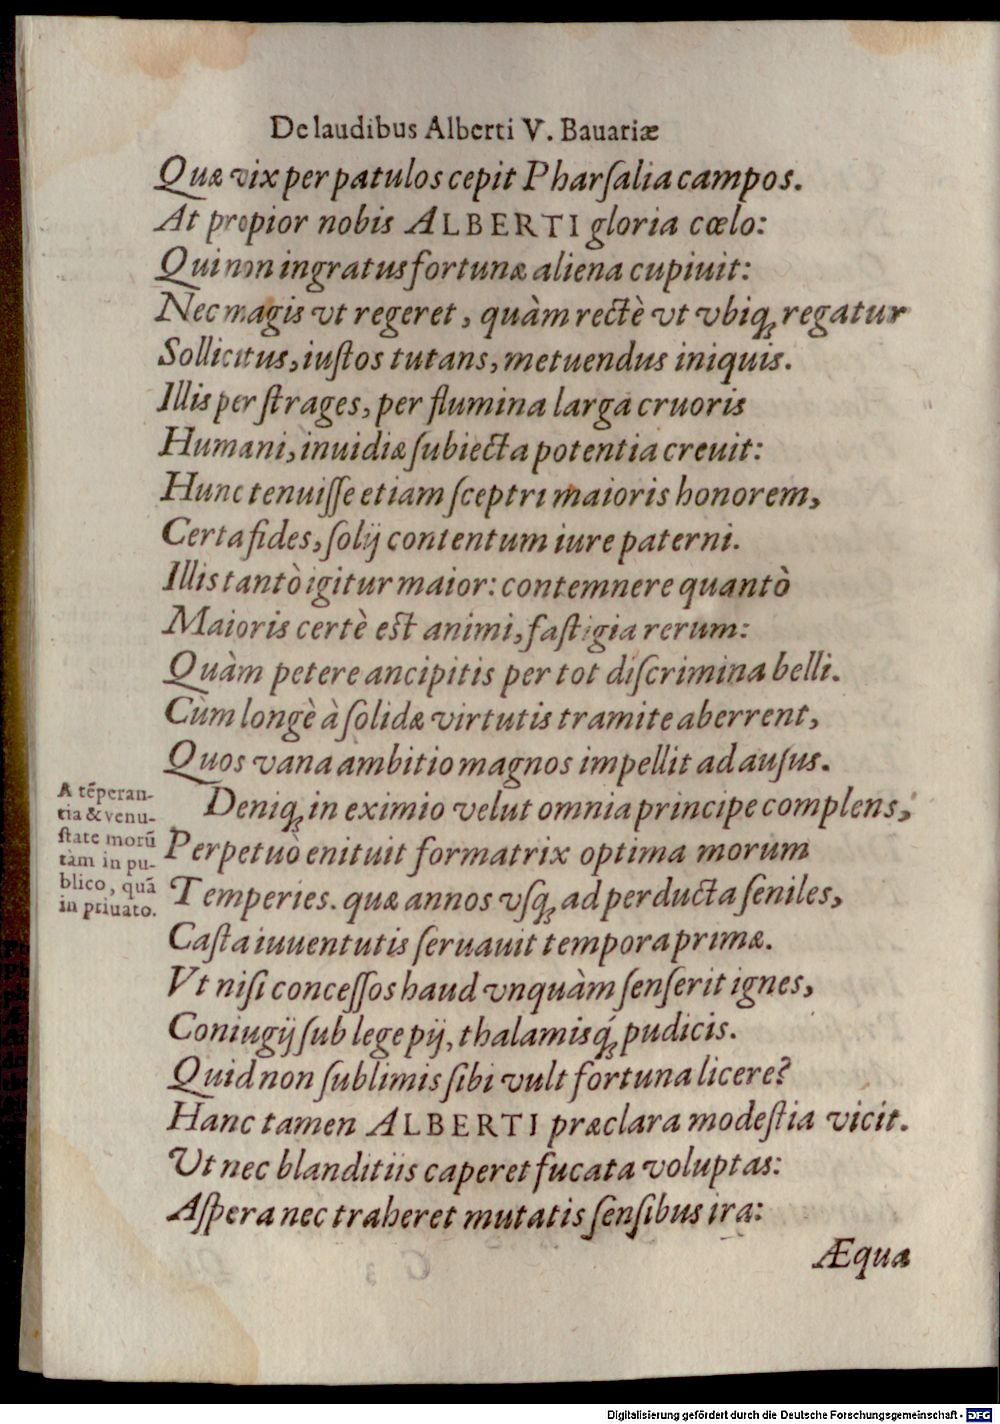 De laudibus Alberti V. Bauariæ
Quæ vix per patulos cepit Pharſalia campos.
At propior nobis ALBERTI gloria cœlo:
Qui non ingratus fortunæ aliena cupiuit:
Nec magis vt regeret, quàm rectè vt vbiq; regatur
Sollicitus, iuſtos tutans, metuendus iniquis.
Illis per ſtrages, per flumina larga cruoris
Humani, inuidiæ ſubiecta potentia creuit:
Hunc tenuiſſe etiam ſceptri maioris honorem,
Certa fides, ſolij contentum iure paterni.
Illis tantò igitur maior: contemnere quantò
Maioris certè eſt animi, faſtigia rerum:
Quàm petere ancipitis per tot diſcrimina belli.
Cùm longè à ſolidæ virtutis tramite aberrent,
Quos vana ambitio magnos impellit ad auſus.
A tẽperan-
tia & venu-
ſtate morũ
tàm in pu-
blico, quã
in priuato.
Deniq; in eximio velut omnia principe complens,
Perpetuò enituit formatrix optima morum
Temperies. quæ annos vſq; ad perducta ſeniles,
Caſta iuuentutis ſeruauit tempora primæ.
Vt niſi conceſſos haud vnquàm ſenſerit ignes,
Coniugij ſub lege pij, thalamisq́; pudicis.
Quid non ſublimis ſibi vult fortuna licere?
Hanc tamen ALBERTI præclara modeſtia vicit.
Vt nec blanditiis caperet fucata voluptas:
Aſpera nec traheret mutatis ſenſibus ira:
Æqua
Digitalisierung gefördert durch die Deutsche Forschungsgemeinschaft - DFG